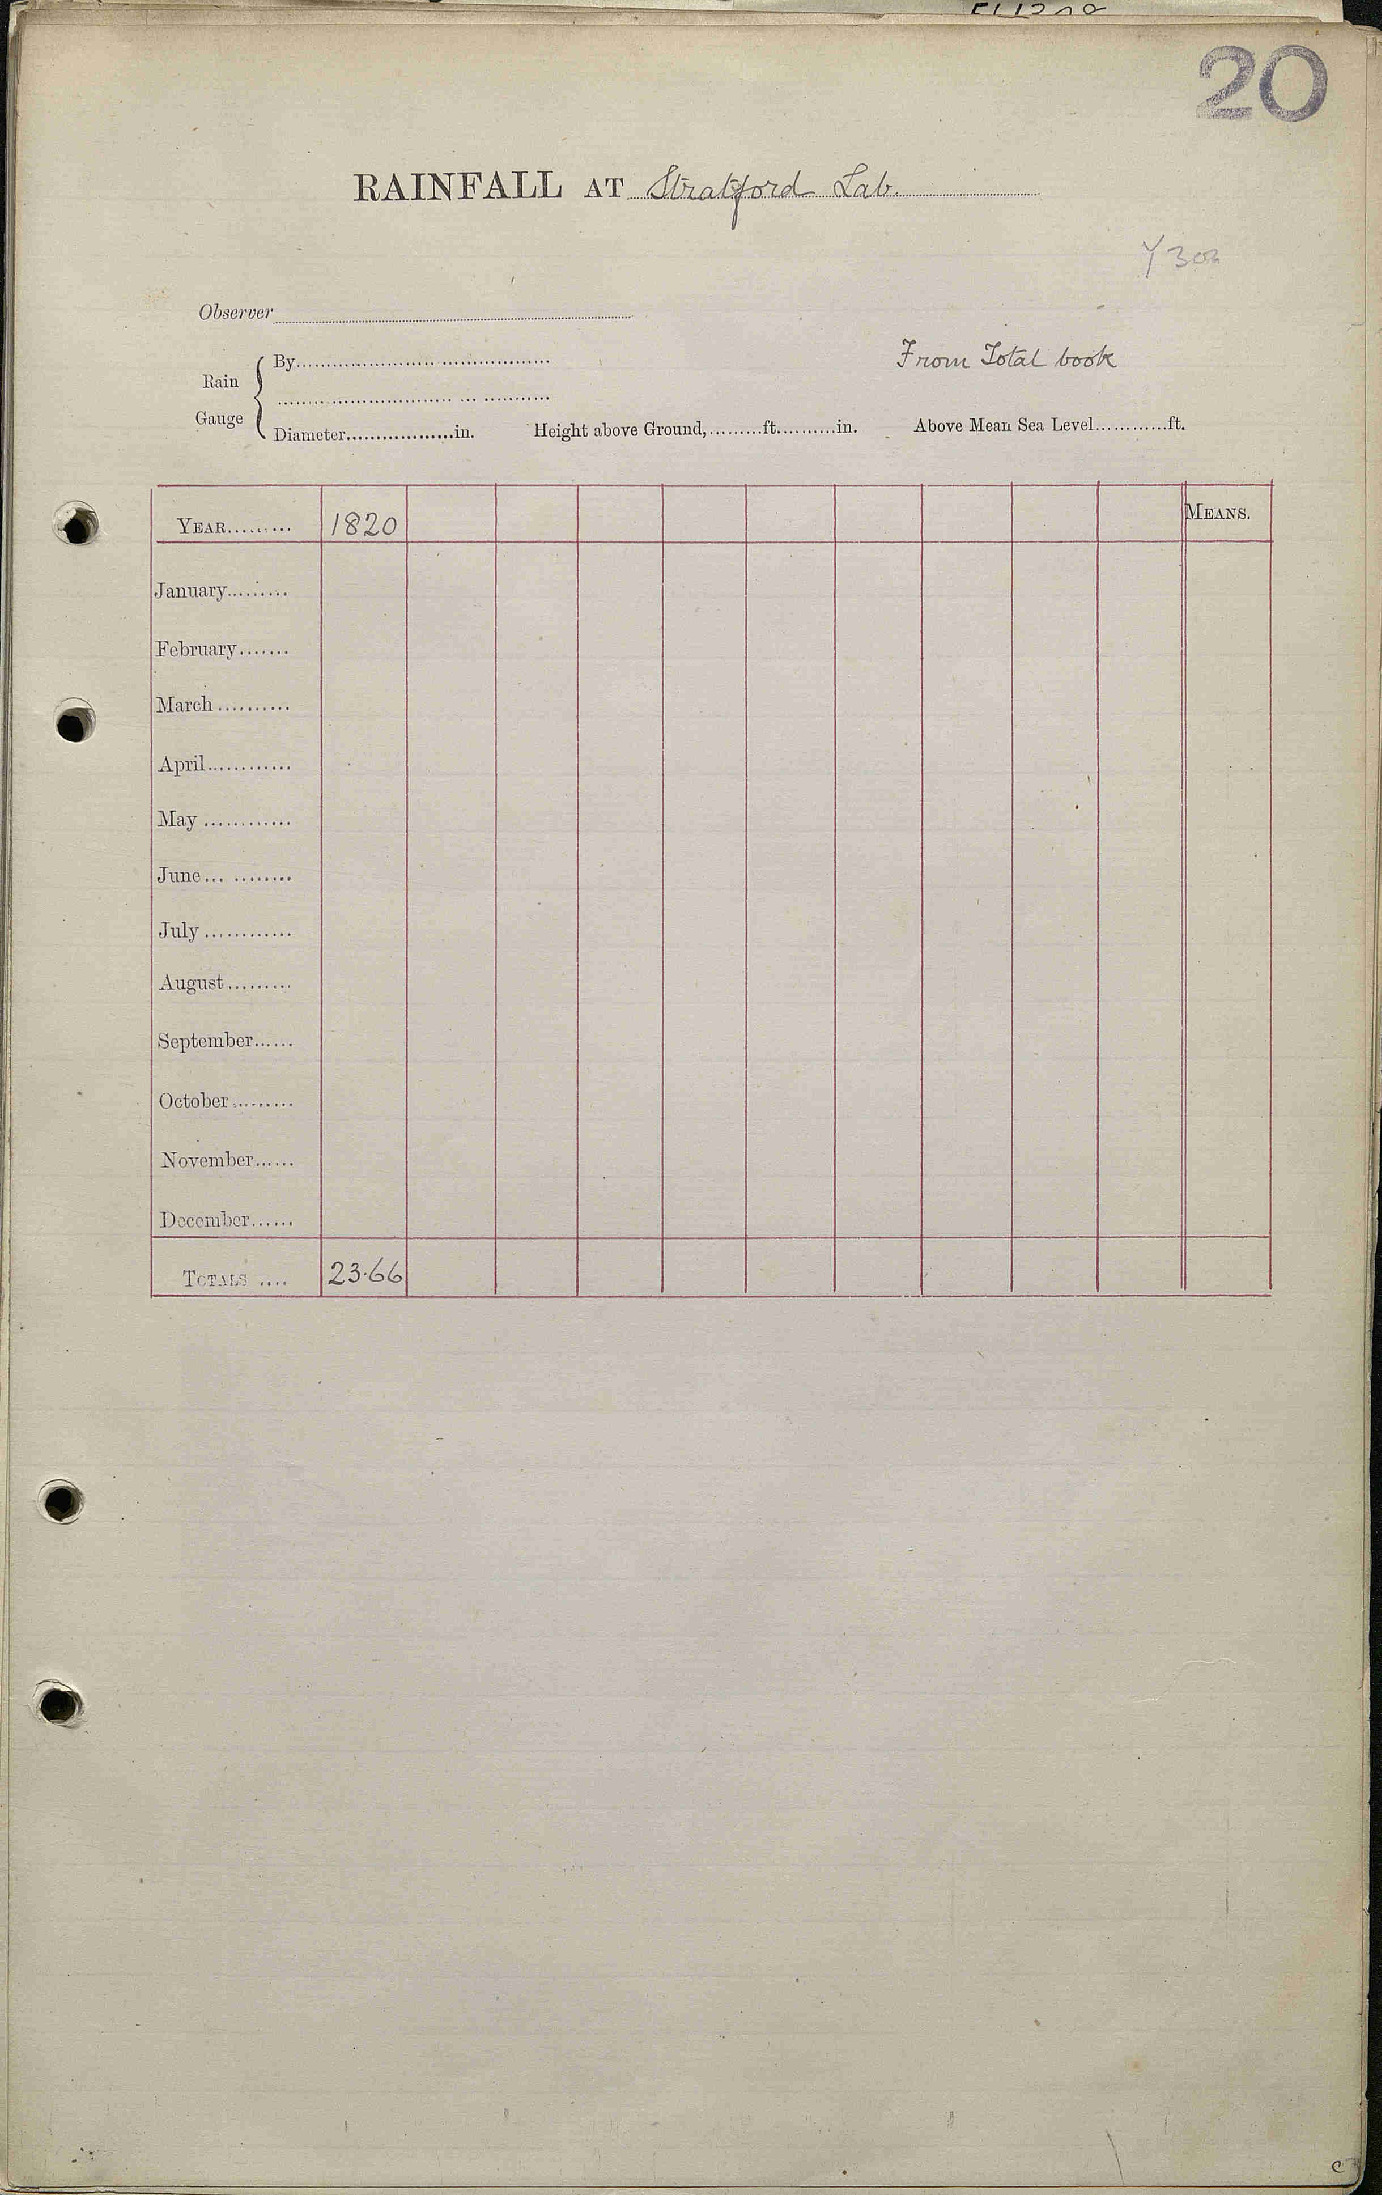 20
RAINFALL AT Stratford Lab.
Observer
From Total book
Rain Gauge
By
Diameter..................in. Height above Ground,.........ft..........in. Above Mean Sea Level............ft.
YEAR......... 1820 MEANS.
January.........
February.......
March..........
April............
May............
June... ........
July............
August.........
September......
October.........
November......
December......
TOTALS .... 23.66
c